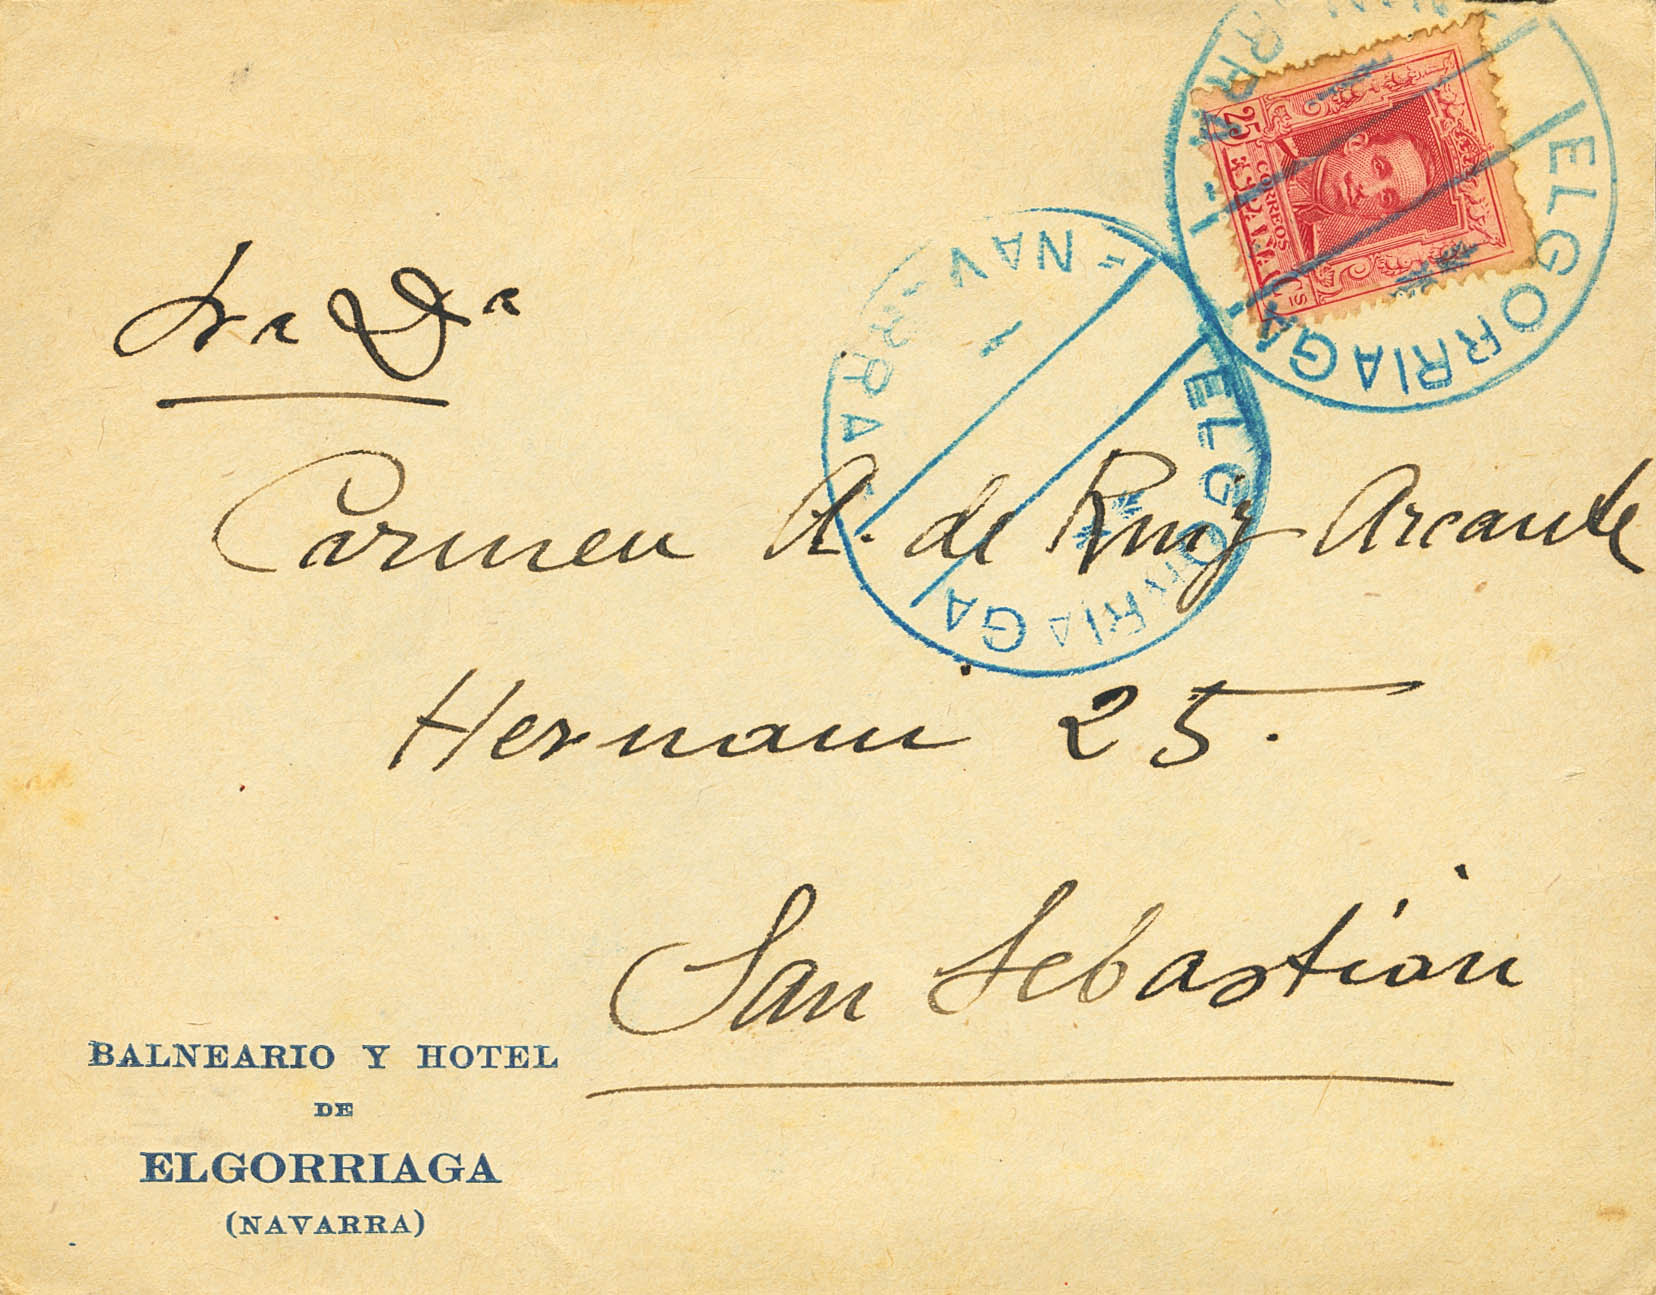 Sra Dª
Carmen A. de Ruiz Arcaute
Hernani 25.
San Sebastian
BALNEARIO Y HOTEL
DE
ELGORRIAGA
(NAVARRA)
ELGORRIAGA
NAVARRA
ELGORRIAGA
25 Cs
CORREOS
ESPAÑA